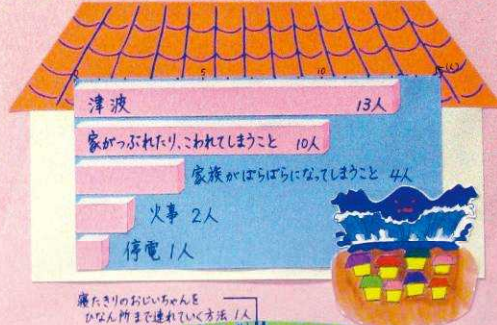 0 5 10 15(人)
津波 13人
家がつぶれたり、こわれてしまうこと 10人
家族がばらばらになってしまうこと 4人
火事 2人
停電 1人
寝たきりのおじいちゃんを
ひなん所まで連れていく方法 1人